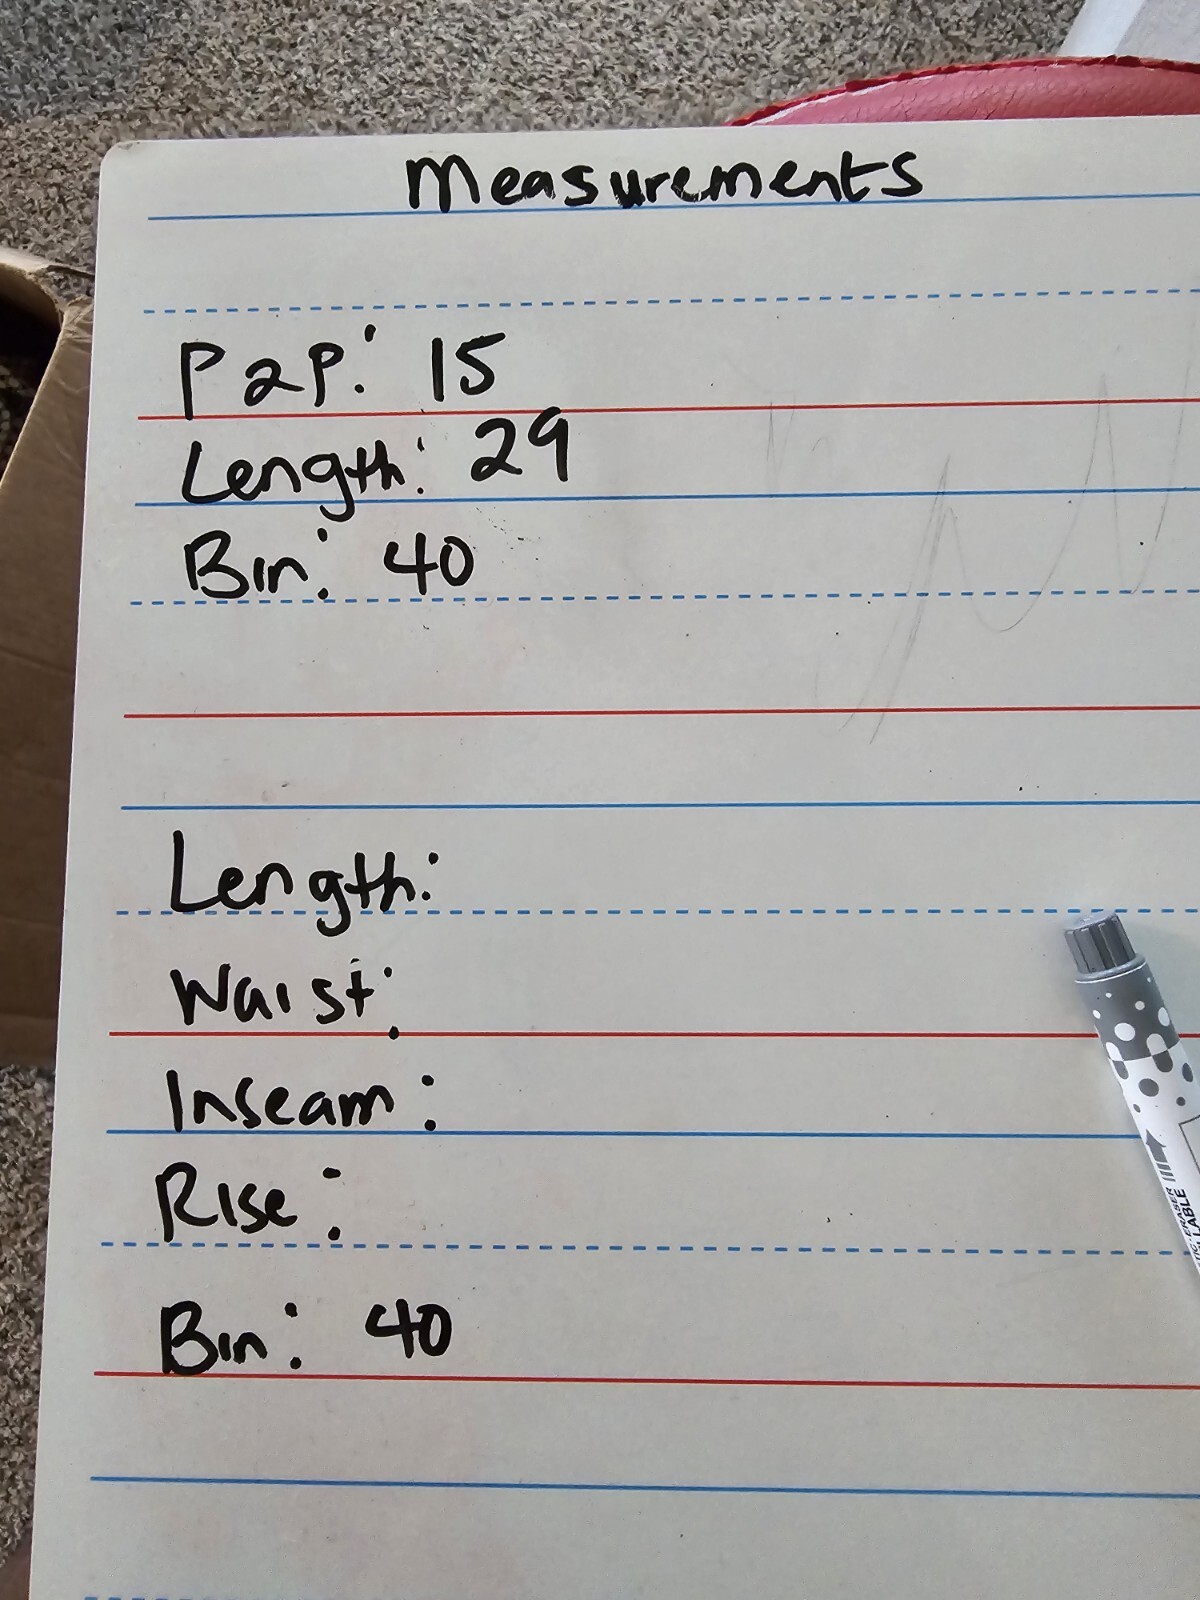 Measurements
P2P: 15
Length: 29
Bin: 40
Length:
Waist:
Inseam:
Rise:
Bin: 40
ERASER
LABLE